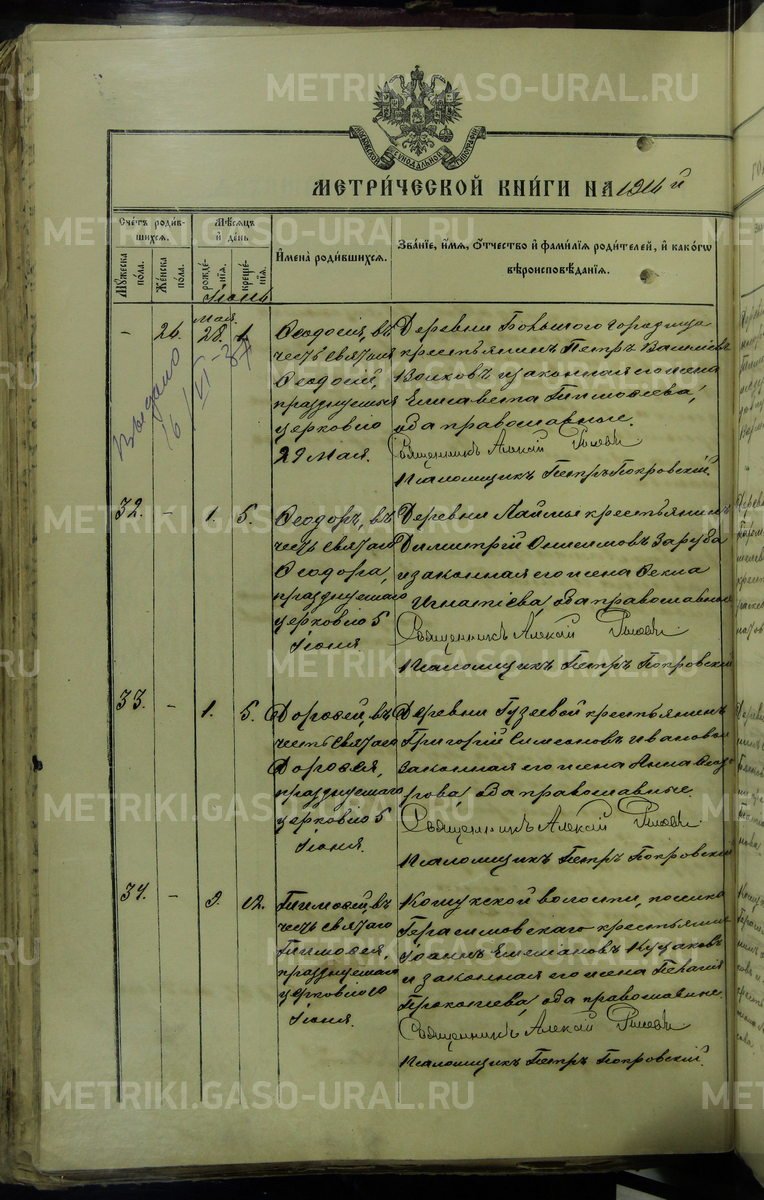 METRIKI.GASO-URAL.RU
МОСКОВСКОЙ СѴНОДАЛЬНОЙ ТИПОГРАФІИ
МЕТРИ́ЧЕСКОЙ КНИ́ГИ НА 1914 й
Сче́тъ роди́вшихся.
Мꙋ́жеска по́ла.
Же́нска по́ла.
Мѣ́сяцъ и҆ де́нь
рожде́нїѧ.
креще́нїѧ.
И҆мена̀ роди́вшихсѧ.
Зва́нїе, и҆́мѧ, ѻ҆́тчество и҆ фами́лїѧ роди́телей, и҆ како́гѡ вѣроисповѣ́данїѧ.
Іюнь
Мая
- 26. 28. 1.
Ѳеодосія, въ
честь святыя
Ѳеодосіи,
празднуемыя
церковію
29 Мая.
Деревни Большого Городища
крестьянинъ Петръ
Волковъ и законная его жена
Елисавета Тимоѳеева,
оба православные.
Священникъ Алексій
Псаломщикъ Петръ Покровскій.
Выдано
16/VI-37
32. - 1. 5.
Ѳеодоръ, въ
честь святаго
Ѳеодора,
празднуемаго
церковію 5
Іюня.
Деревни Лаймы крестьянинъ
Димитрій Онисимовъ Заруба
и законная его жена Ѳекла
Игнатіева, оба православные
Священникъ Алексій
Псаломщикъ Петръ Покровскій
33. - 1. 5.
Дороѳей, въ
честь святаго
Дороѳея,
празднуемаго
церковію 5
Іюня.
Деревни Гузеевой крестьянинъ
Григорій Симеоновъ Ивановъ и
законная его жена Анна Ѳеодо-
рова, оба православные.
Священникъ Алексій
Псаломщикъ Петръ Покровскій
34. - 9. 12.
Тимоѳей, въ
честь святаго
Тимоѳея,
празднуемаго
церковію 10
Іюня.
Кошукской волости, поселка
Герасимовскаго крестьянинъ
Іоаннъ Емеліановъ Кузаковъ
и законная его жена Пелагія
Прокопіева, оба православные.
Священникъ Алексій
Псаломщикъ Петръ Покровскій.